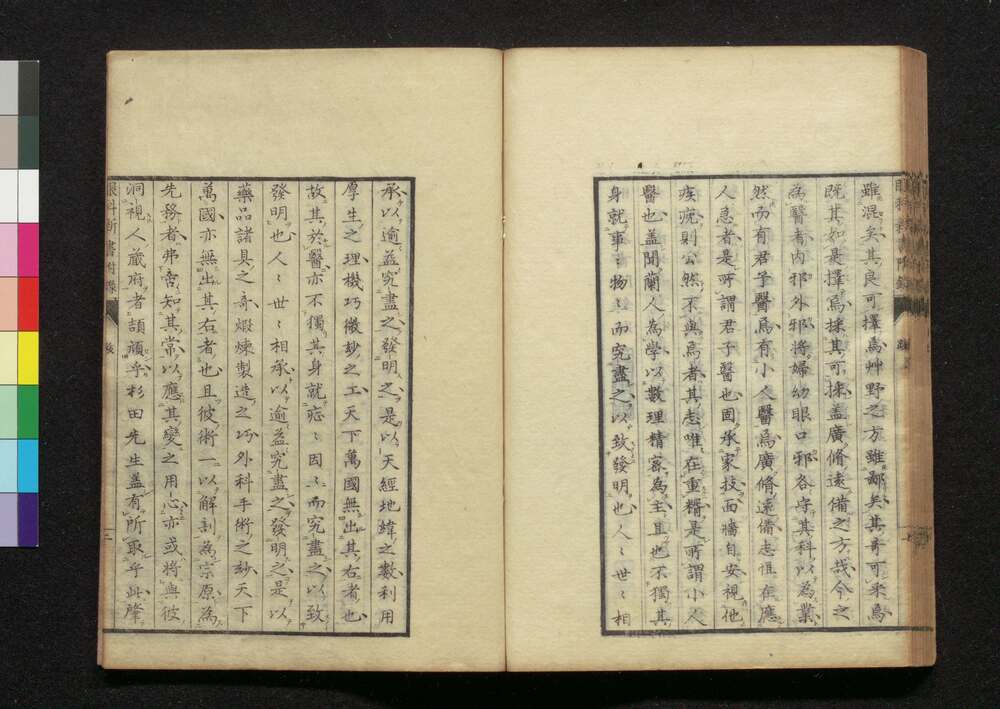 雖混矣其良可擇焉艸野之方雖鄙矣其奇可采焉
既其如是擇焉採其可採盖廣脩遠備之方哉今之
為醫者内邪外邪將婦幼眼口邪各守其科以為業
然而有君子醫焉有小人醫焉廣脩遠備志恒在應
人急者是所謂君子醫也固承家技面牆自安視他
疾病則公然不與焉者其志唯在重糈是所謂小人
醫也盖聞蘭人為學以數理精密為主且也不獨其
身就事〻物〻而究盡之以致發明也人〻世〻相
承以逾益究盡之發明之是以天經地緯之數利用
厚生之理機巧微玅之工天下萬國無出其右者也
故其於醫亦不獨其身就症〻因〻而究盡之以致
發明也人〻世〻相承以逾益究盡之發明之是以
藥品諸具之奇煅煉製造之巧外科手術之玅天下
萬國亦無出其右者也且彼術一以解剖為宗原為
先務者弗舍知其常以應其變之用心亦或將與彼
洞視人蔵府者頡頏乎杉田先生盖有所取乎此肇
眼科新書附録
跋
二